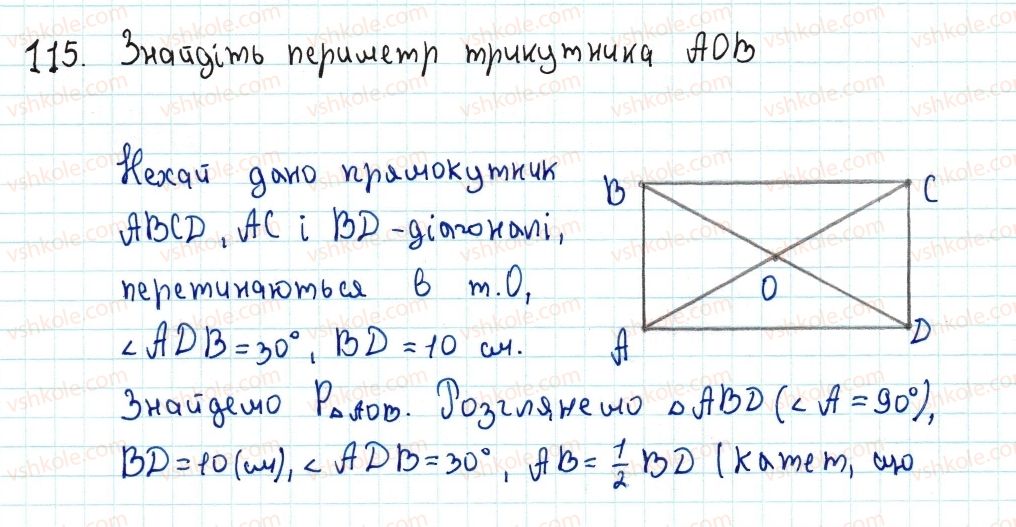 115. Знайдіть периметр трикутника АОВ
Нехай дано прямокутник
ABCD, AC і BD - діагоналі,
перетинаються в т.О,
∠ADB = 30°, BD = 10 см.
B
C
O
A
D
Знайдемо P△AOB. Розглянемо △ABD (∠A = 90°),
BD = 10 (см), ∠ADB = 30°, AB = 1/2 BD (катет, що
vshkole.com